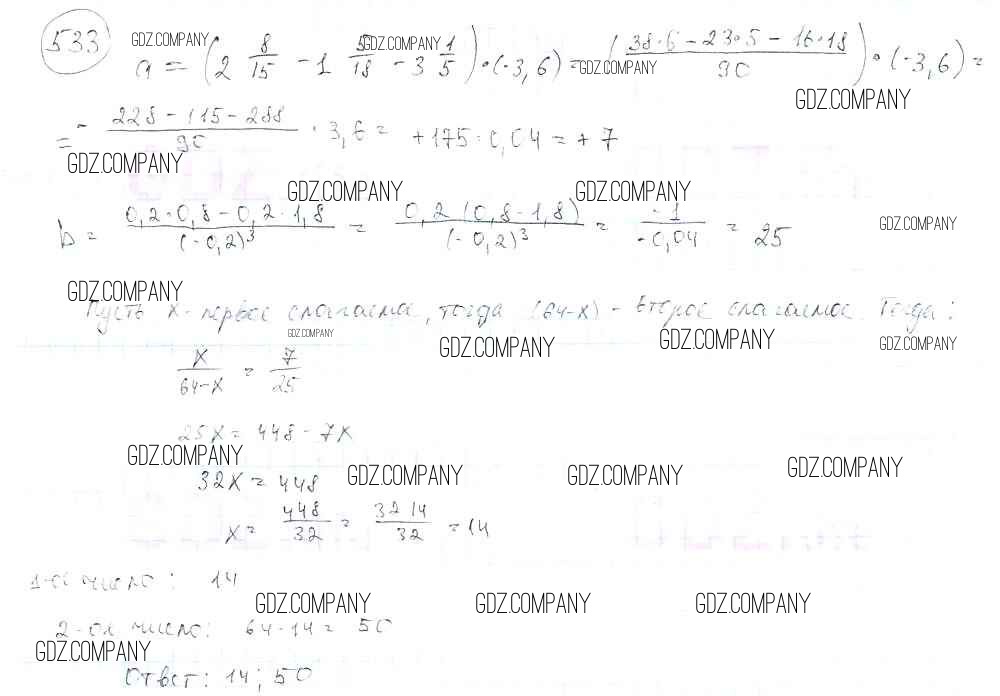 533 GDZ.COMPANY GDZ.COMPANY
a = (2 8/15 - 1 5/18 - 3 1/5) · (-3,6) = ((38·6 - 23·5 - 16·18)/90) · (-3,6) =
GDZ.COMPANY
GDZ.COMPANY
= - (228 - 115 - 288)/90 · 3,6 = +175 · 0,04 = + 7
GDZ.COMPANY
GDZ.COMPANY GDZ.COMPANY
b = (0,2·0,8 - 0,2·1,8)/(-0,2)³ = (0,2 (0,8 - 1,8))/(-0,2)³ = -1/-0,04 = 25 GDZ.COMPANY
GDZ.COMPANY
Пусть x - первое слагаемое, тогда (64-x) - второе слагаемое. Тогда:
GDZ.COMPANY GDZ.COMPANY GDZ.COMPANY GDZ.COMPANY
x/(64-x) = 7/25
25x = 448 - 7x
GDZ.COMPANY GDZ.COMPANY GDZ.COMPANY GDZ.COMPANY
32x = 448
x = 448/32 = 32 14/32 = 14
1-ое число: 14
GDZ.COMPANY GDZ.COMPANY GDZ.COMPANY
2-ое число: 64-14 = 50
GDZ.COMPANY
Ответ: 14; 50